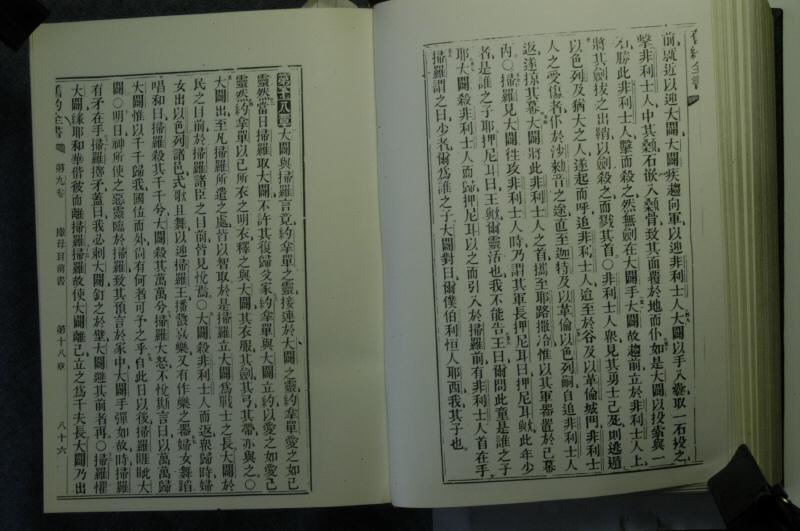 舊約全書
前就近以迎大闢大闢疾趨向軍以迎非利士人大闢以手入囊取一石投之
擊非利士人中其顙石嵌入顙骨致其面覆於地而仆如是大闢以投索與一
石勝此非利士人擊而殺之然無劍在大闢手大闢故趨前立於非利士人上
將其劍拔之出鞘以劍殺之而戮其首○非利士人衆見其勇士已死則逃遁
以色列及猶大之人遂起而呼追非利士人追至於谷及以革倫城門非利士
人之受傷者仆於沙勑音之途直至迦特及以革倫以色列嗣自追非利士人
返遂掠其幕大闢將此非利士人之首攜至耶路撒冷惟以其軍器置於己幕
內○掃羅見大闢往攻非利士人時乃謂其軍長押尼耳曰押尼耳歟此年少
者是誰之子耶押尼耳曰王歟爾靈活也我不能告王曰爾問此童是誰之子
耶大闢殺非利士人而歸押尼耳以之而引入於掃羅前有非利士人首在手
掃羅謂之曰少者爾爲誰之子大闢對曰爾僕伯利恒人耶西我其子也
第十八章 大闢與掃羅言竟約拿單之靈接連於大闢之靈約拿單愛之如己
靈然當日掃羅取大闢不許其復歸父家約拿單與大闢立約以愛之如愛己
靈然約拿單以己所衣之明衣釋之與大闢其衣服其劍其弓其帶亦與之○
大闢出至凡掃羅所遣之處皆以智取於是掃羅立大闢爲戰士之長大闢於
民之目前於掃羅諸臣之目前皆見忱焉○大闢殺非利士人而返衆歸時婦
女出以色列諸邑式歌且舞以迎掃羅王播鼗喜樂又有作樂之器婦女舞蹈
唱和曰掃羅殺其千千兮大闢殺其萬萬兮掃羅大怒不悅斯言曰以萬萬歸
大闢惟以千千歸我國位而外尙有何者可予之乎自此日以後掃羅睢眦大
闢○明日神所使之惡靈臨於掃羅致其預言於家中大闢手彈如故時掃羅
有矛在手掃羅擲矛蓋曰我必刺大闢釘之於壁大闢避其前者再○掃羅懼
大闢緣耶和華偕彼而離掃羅掃羅故使大闢離己立之爲千夫長大闢乃出
舊約全書 第九卷 撒母耳前書 第十八章 八十六